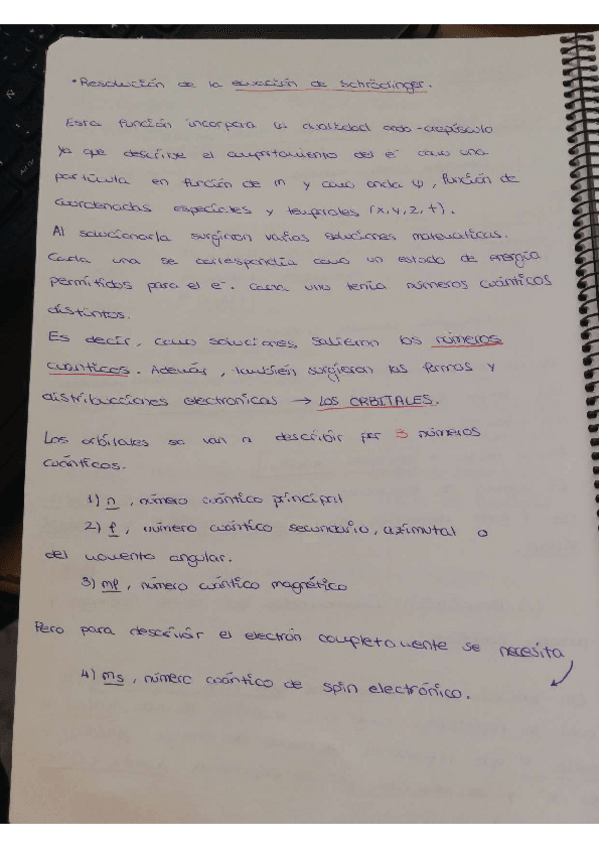 • Resolución de la ecuación de Schrödinger.
Esta función incorpora la dualidad onda-crepúsculo
ya que describe el comportamiento del e⁻ como una
partícula en función de m y como onda ψ, función de
coordenadas espaciales y temporales (x, y, z, t).
Al solucionarla surgieron varias soluciones matemáticas.
Cada una se correspondía como un estado de energía
permitidos para el e⁻. Cada uno tenía números cuánticos
distintos.
Es decir, como soluciones salieron los números
cuánticos. Además, también surgieron las formas y
distribucciones electronicas → LOS ORBITALES.
Los orbitales se van a describir por 3 números
cuánticos.
1) n, número cuántico principal
2) l, número cuántico secundario, azimutal o
del momento angular.
3) ml, número cuántico magnético
Pero para describir el electrón completamente se necesita
4) ms, número cuántico de spin electrónico.